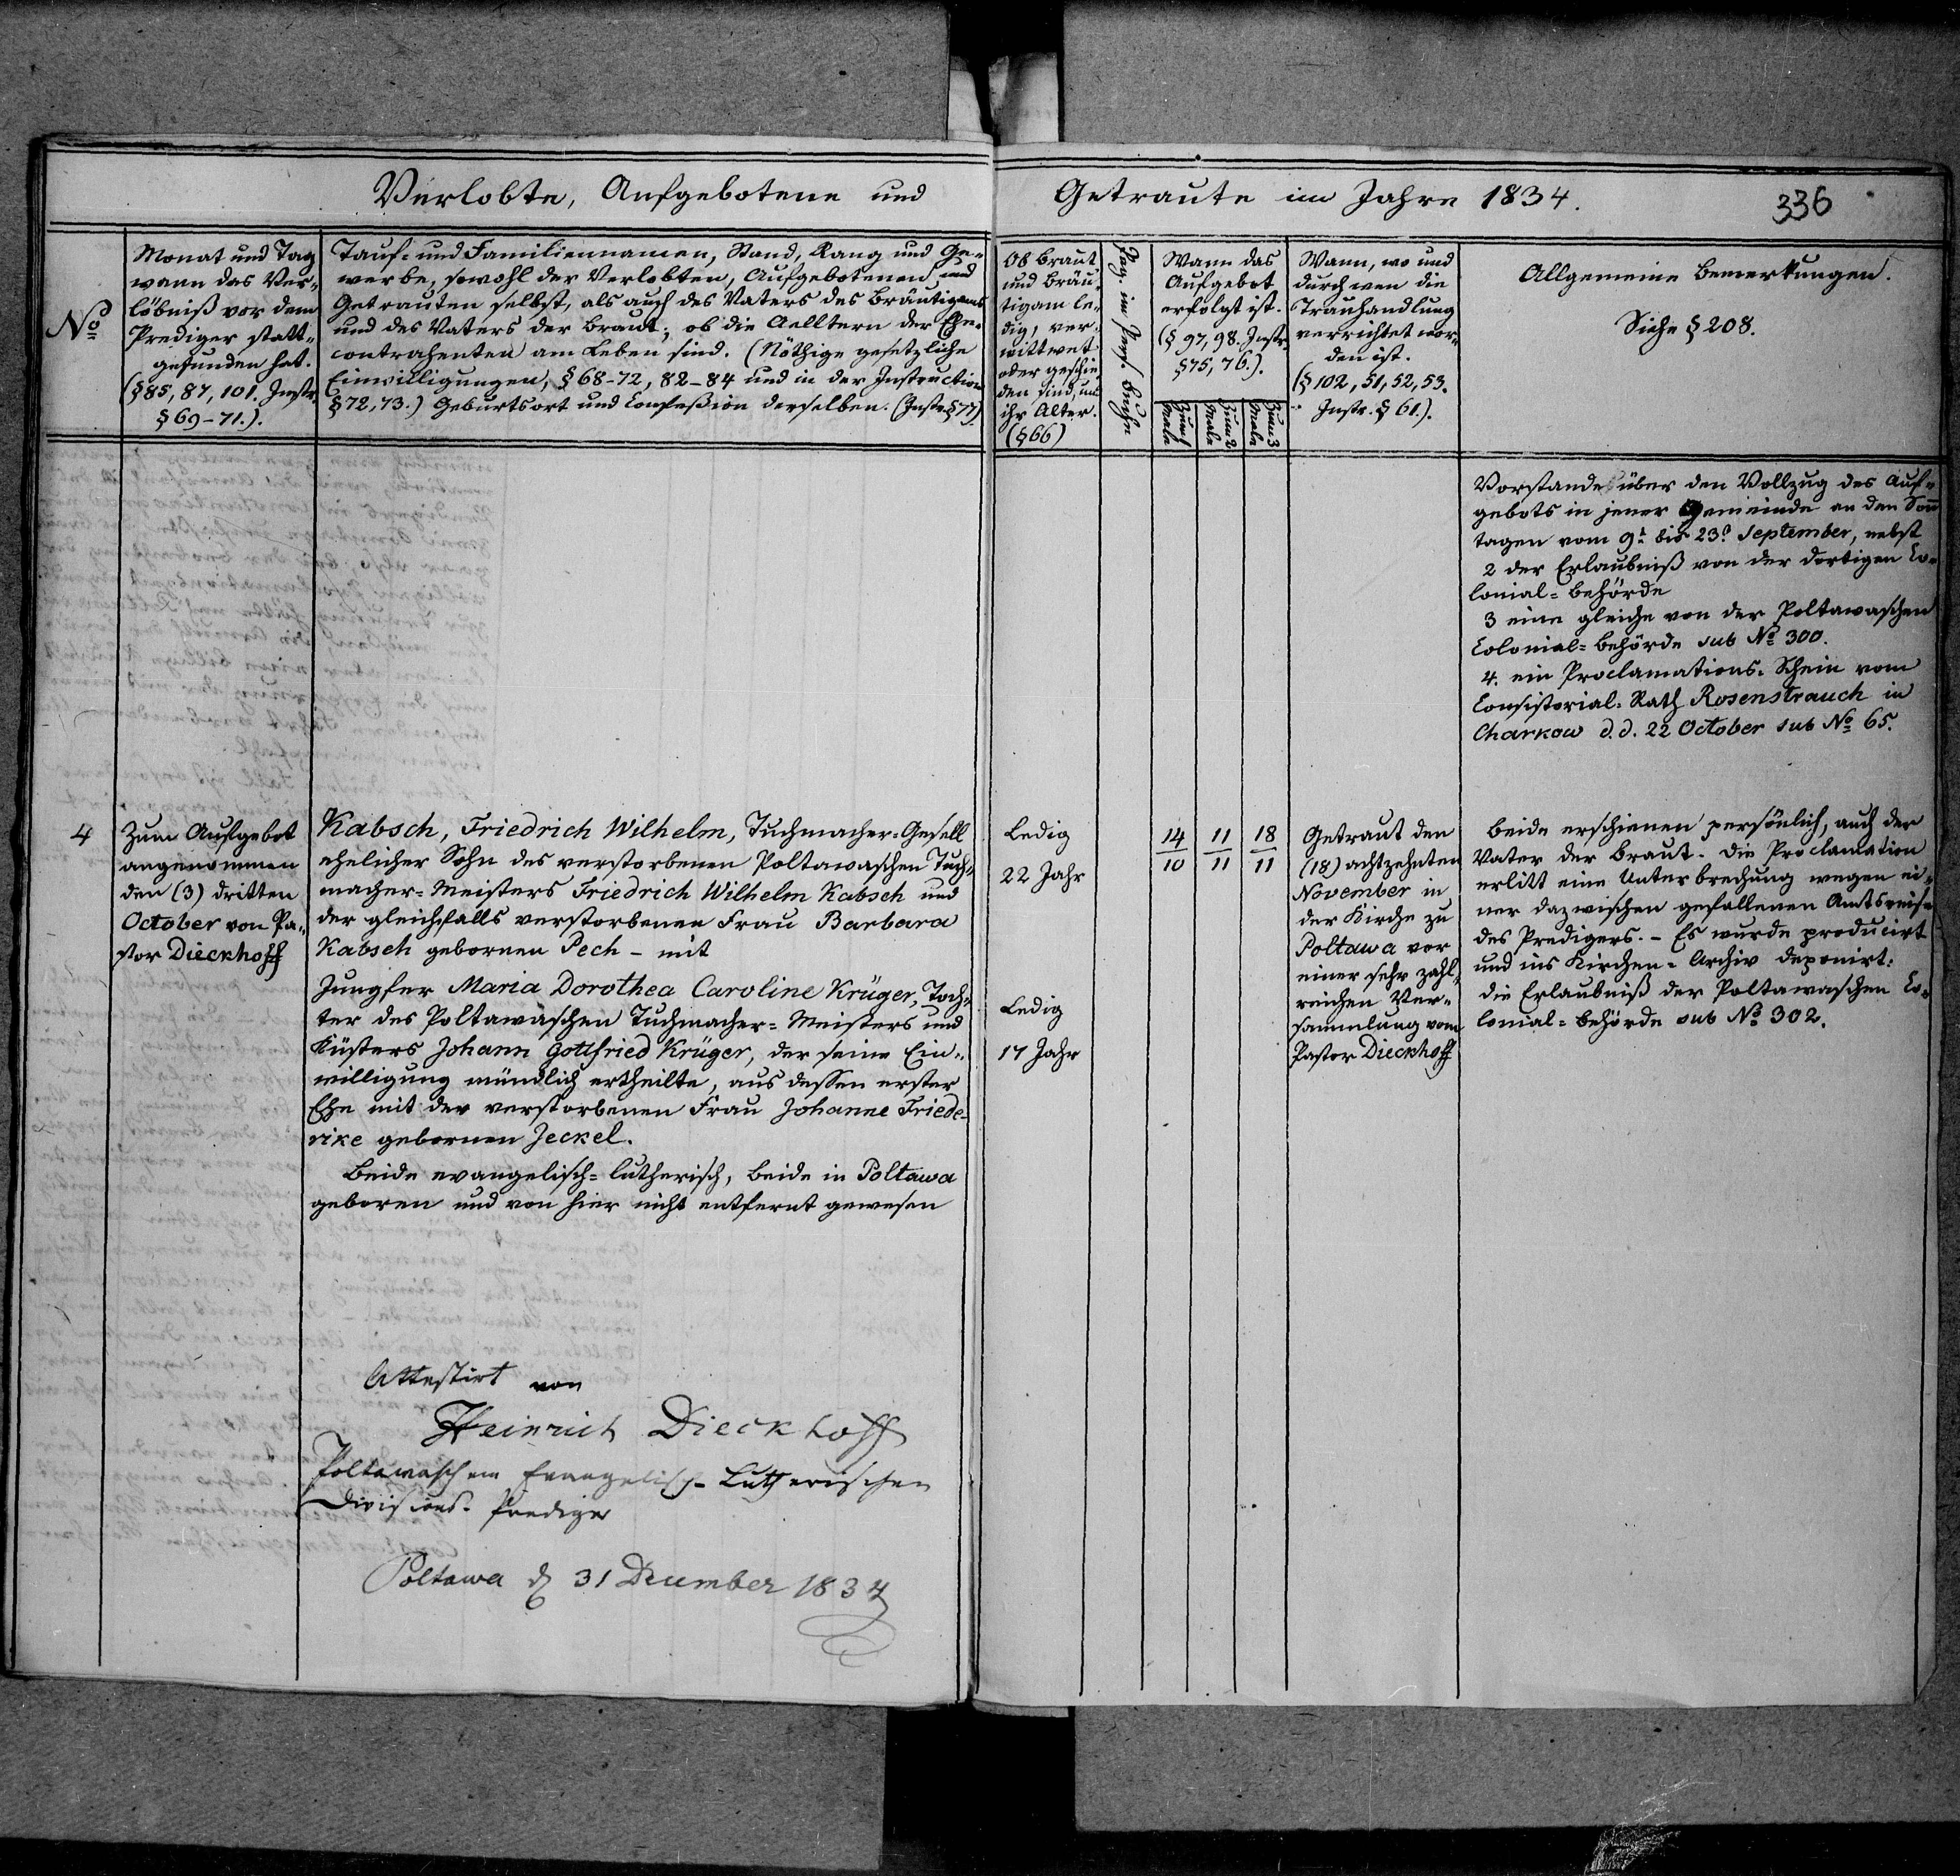 Verlobte, Aufgebotene und
Getraute im Jahre 1834.
336
No
Monat und Tag
wann das Ver-
löbniß vor dem
Prediger statt-
gefunden hat.
(§ 85, 87, 101. Instr.
§ 69-71.).
Tauf- und Familiennamen, Stand, Rang und Ge-
werbe, sowohl der Verlobten, Aufgebotenen und
Getrauten selbst, als auch des Vaters des Bräutigams
und des Vaters der Braut; ob die Aelltern der Ehe-
contrahenten am Leben sind. (Nöthige gesetzliche
Einwilligungen, § 68-72, 82-84 und in der Instruction
§ 72, 73.) Geburtsort und Confeßion derselben. (Instr. § 77).
Ob Braut
und Bräu-
tigam le-
dig, ver-
wittwet
oder geschie-
den sind, und
ihr Alter.
(§ 66)
Pag. im Pers. Buche
Wann das
Aufgebot
erfolgt ist.
(§ 97, 98. Instr.
§ 75, 76.).
Zum 1
Male
Zum 2
Male
Zum 3
Male
Wann, wo und
durch wen die
Trauhandlung
verrichtet wor-
den ist.
(§ 102, 51, 52, 53.
Instr. § 61.).
Allgemeine Bemerkungen.
Siehe § 208.
Vorstandes über den Vollzug des Auf-
gebots in jener Gemeinde an den Son̄
tagen vom 9t bis 23t September, nebst
2 der Erlaubniß von der dortigen Co-
lonial-Behörde
3 eine gleiche von der Poltawaschen
Colonial-Behörde sub No 300.
4. ein Proclamations-Schein vom
Consistorial-Rath Rosenstrauch in
Charkow d.d. 22 October sub No 65.
4
Zum Aufgebot
angenommen
den (3) dritten
October von Pa-
stor Dieckhoff
Kabsch, Friedrich Wilhelm, Tuchmacher-Gesell
ehelicher Sohn des verstorbenen Poltawaschen Tuch-
macher-Meisters Friedrich Wilhelm Kabsch und
der gleichfalls verstorbenen Frau Barbara
Kabsch gebornen Pech - mit
Jungfer Maria Dorothea Caroline Krüger, Toch-
ter des Poltawaschen Tuchmacher-Meisters und
Küsters Johann Gottfried Krüger, der seine Ein-
willigung mündlich ertheilte, aus dessen erster
Ehe mit der verstorbenen Frau Johanne Friede-
rike gebornen Jeckel.
Beide evangelisch-lutherisch, beide in Poltawa
geboren und von hier nicht entfernt gewesen
Ledig
22 Jahr
Ledig
17 Jahr
14 11 18
10 11 11
Getraut den
(18) achtzehnten
November in
der Kirche zu
Poltawa vor
einer sehr zahl-
reichen Ver-
sammlung vom
Pastor Dieckhoff
Beide erschienen persönlich, auch der
Vater der Braut. Die Proclamation
erlitt eine Unterbrechung wegen ei-
ner dazwischen gefallenen Amtsreise
des Predigers. - Es wurde producirt
und ins Kirchen-Archiv deponirt:
die Erlaubniß der Poltawaschen Co-
lonial-Behörde sub No 302.
Attestirt von
Heinrich Dieckhoff
Poltawaschem Evangelisch-Lutherischen
Divisions-Prediger
Poltawa d 31 December 1834